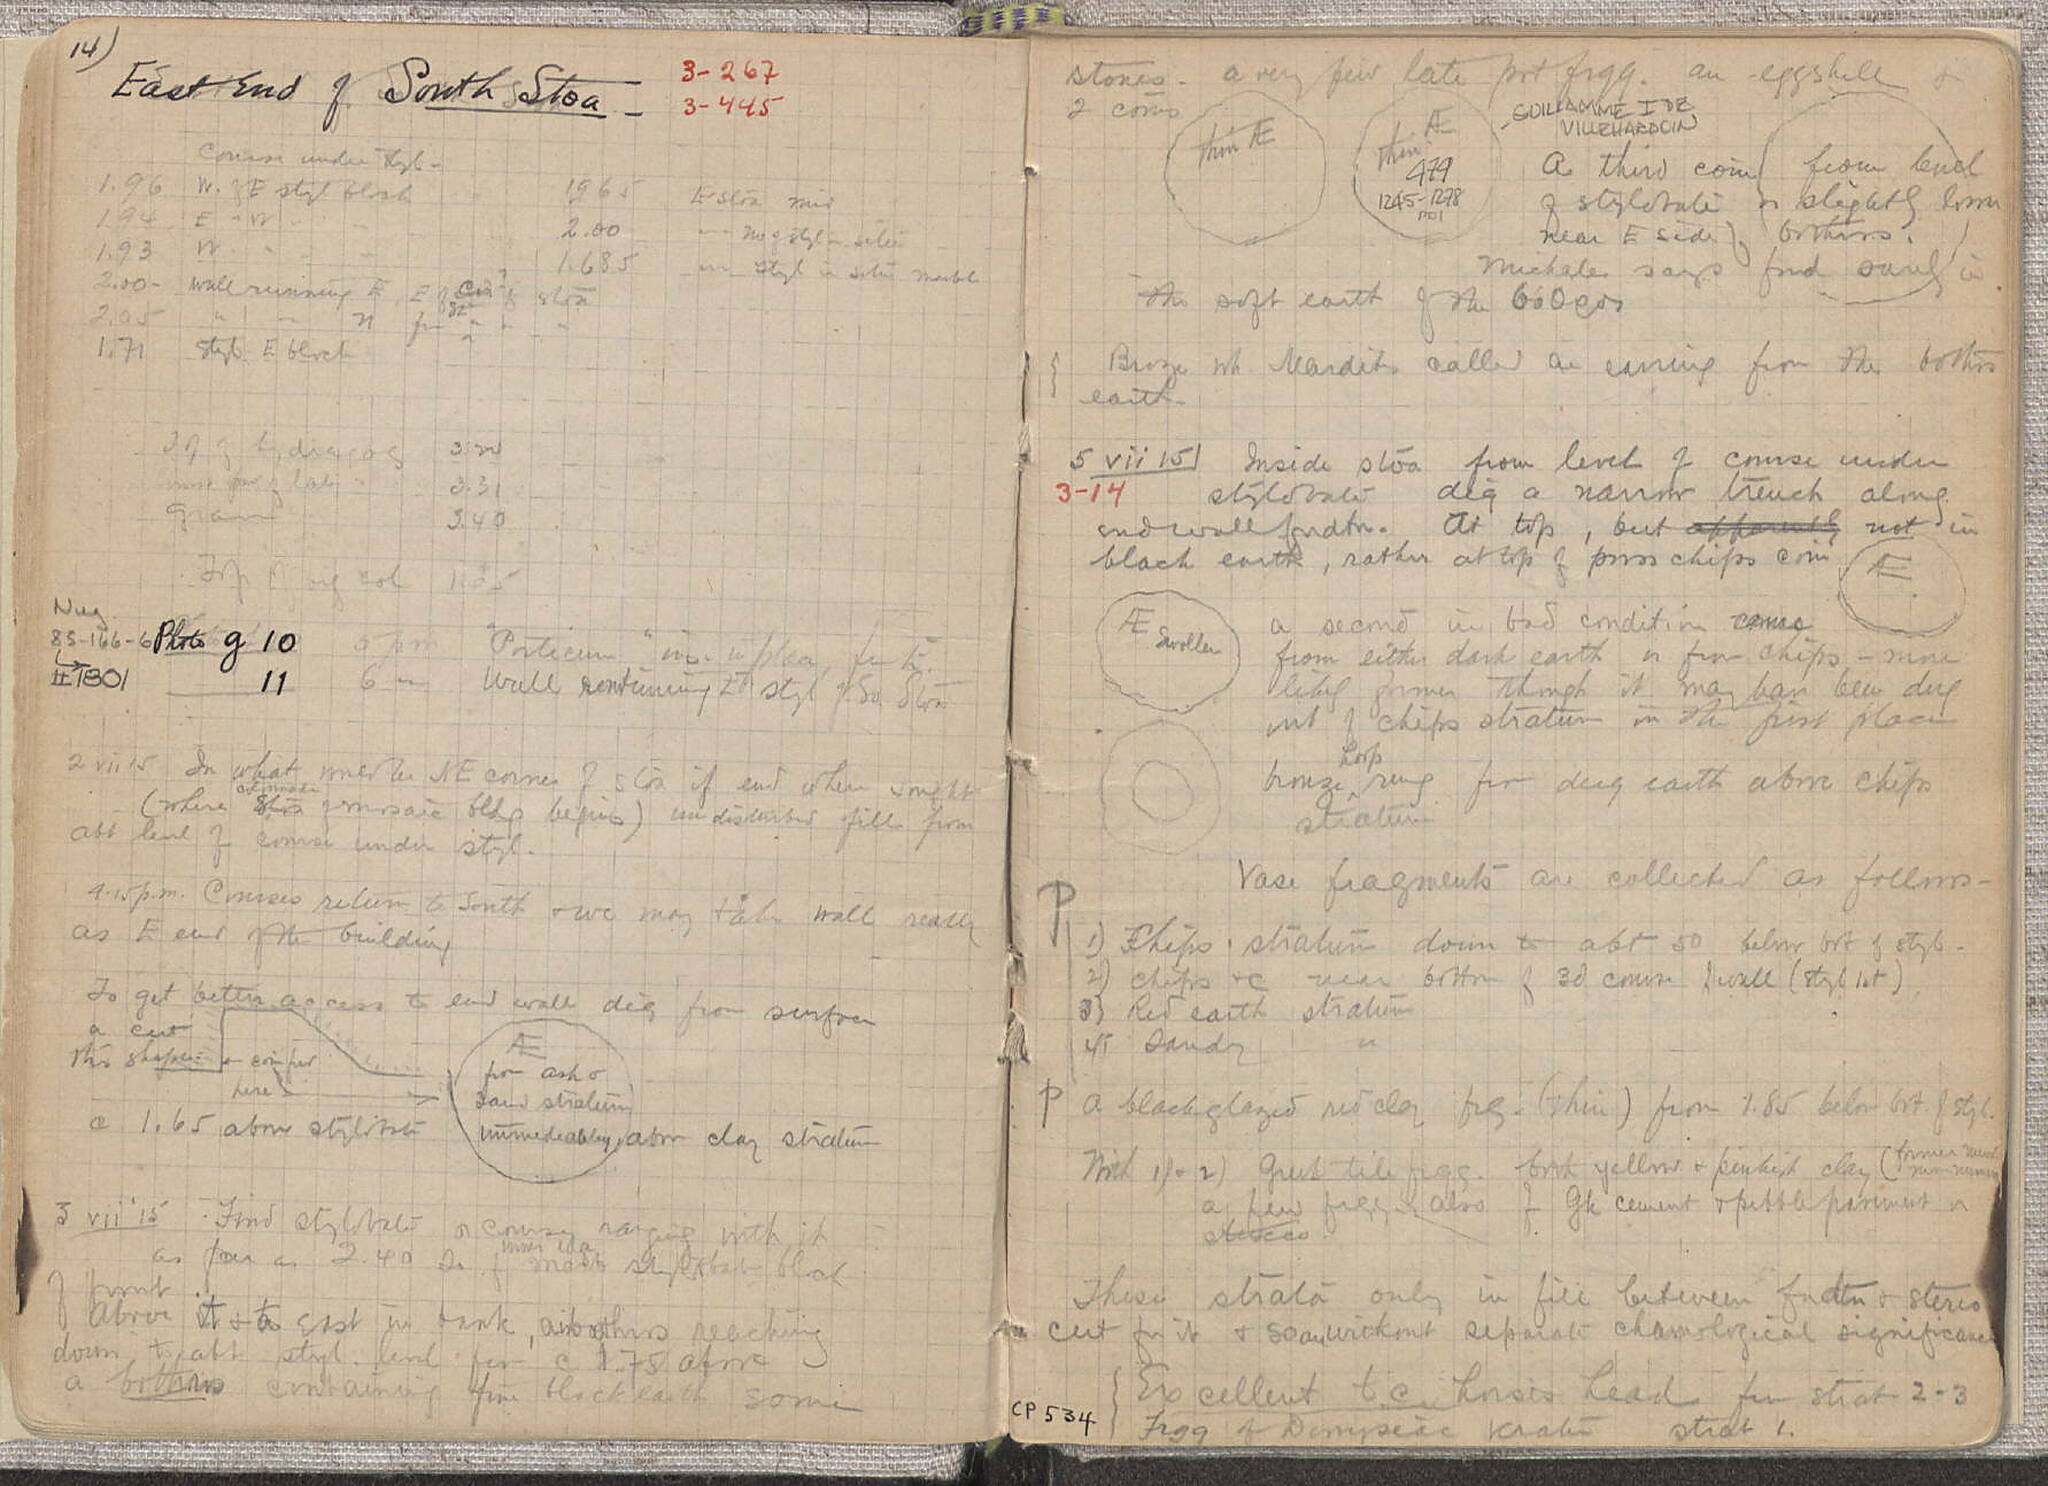 14)
East End of South Stoa - 3-267
3-445
Course under styl-
1.96 W. of E styl block 1965 E stoa mid
1.94 E " W " 2.00 " no styl in situ
1.93 W " 1.685 " styl in situ
2.00- Wall running E, E of stoa
2.05 " " N from " " "
1.71 styl E block
3.20
3.31
3.40
Top of big col
Neg.
85-166-6 Photo g 10 5 pm "Porticum" ins. in place,
II 1801
11 6 " Wall continuing E styl of So Stoa
2 vii 15 In what must be NE corner of stoa if end where sought
(where colonnade of mosaic bldg begins) undisturbed fill from
abt level of course under styl.
4.15 p.m. Courses return to South & we may take wall really
as E end of the building
To get better access to end wall dig from surface
a cut
this shape: coin from
here
Æ
from ash &
sand stratum
immediately above clay stratum
c 1.65 above stylobate
3 vii '15 Find stylobate or course ranging with it
as far as 2.40 So of stylobate block
of front.
Above it & to east in bank, a bothros reaching
down to abt styl. level from c 1.75 above
a bothros containing fine black earth some
stones - a very few late pot frgg. an eggshell &
2 coins
thin Æ
Æ
thin
479
1245-1278
GUILLAMME I DE
VILLEHARDOIN
A third coin from level
of stylobate or slightly lower
near E side of bothros.
Michales says find sandy in
the soft earth of the βόθρος
Bronze wh. Mardites called an earring from the bothros
earth-
5 vii 15 Inside stoa from level of course under
3-14 stylobate dig a narrow trench along
end wall fndtn. At top, but apparently not in
black earth, rather at top of poros chips coin Æ
Æ
Swollen
a second in bad condition came
from either dark earth or from chips - more
likely former though it may have been dug
out of chips stratum in the first place
bronze loop ring from dug earth above chips
stratum
Vase fragments are collected as follows-
P
1) Chips stratum down to abt 50 below bot of styl-
2) chips &c near bottom of 3d course of wall (styl 1st)
3) Red earth stratum
4) Sandy "
P a black glazed red clay frg- (thin) from 1.85 below bot. of styl.
With 1) & 2) Greek tile frgg. both yellow & pinkish clay (former
a few frgg. also of Gk cement & pebble pavement or
stucco
These strata only in fill between fndtn & stereo
cut for it & so without separate chronological significance
CP 534
Excellent t.c. horse's head from strat 2-3
Frgg of Dionysiac krater strat 1.